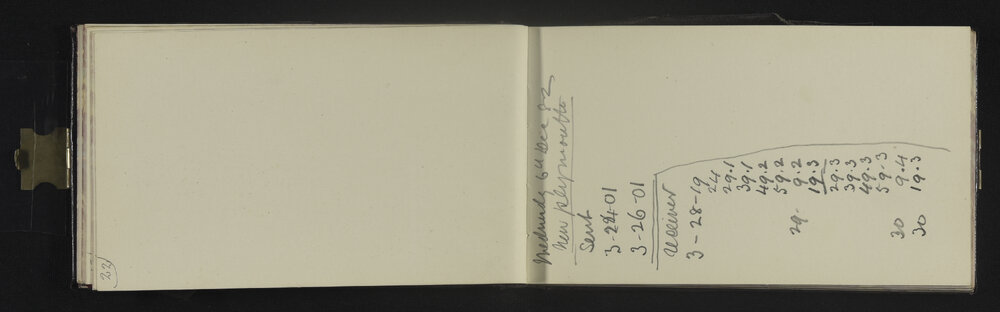 22)
Wednesday 6th Dec 82
New Plymouth
Sent
3-24-01
3-26-01
Receiver
3-28-19
24
29.1
39.1
49.2
59.2
29. 9.2
19.3
29.3
39.3
49.3
59.3
30 9.4
30 19.3